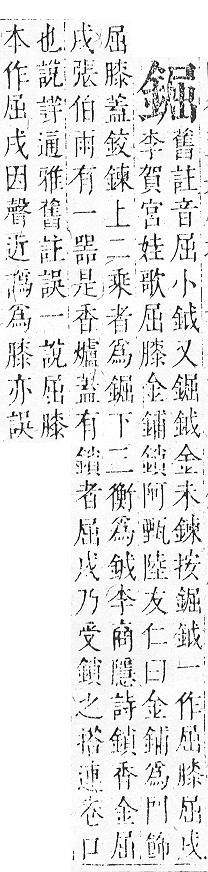 舊註音屈小鉞又鉞金未鍊按鉞一作屈膝屈戌
李賀宮娃歌屈膝金鋪鎖阿甄陸友仁曰金鋪為門飾
屈膝蓋鉸鍊上二乘者為下二衡為鉞李商隱詩鎖香金屈
戌張伯雨有一器是香爐蓋有鎖者屈戌乃受鎖之搭連卷口
也說詳通雅舊註誤一說屈膝
本作屈戌因聲近譌為膝亦誤